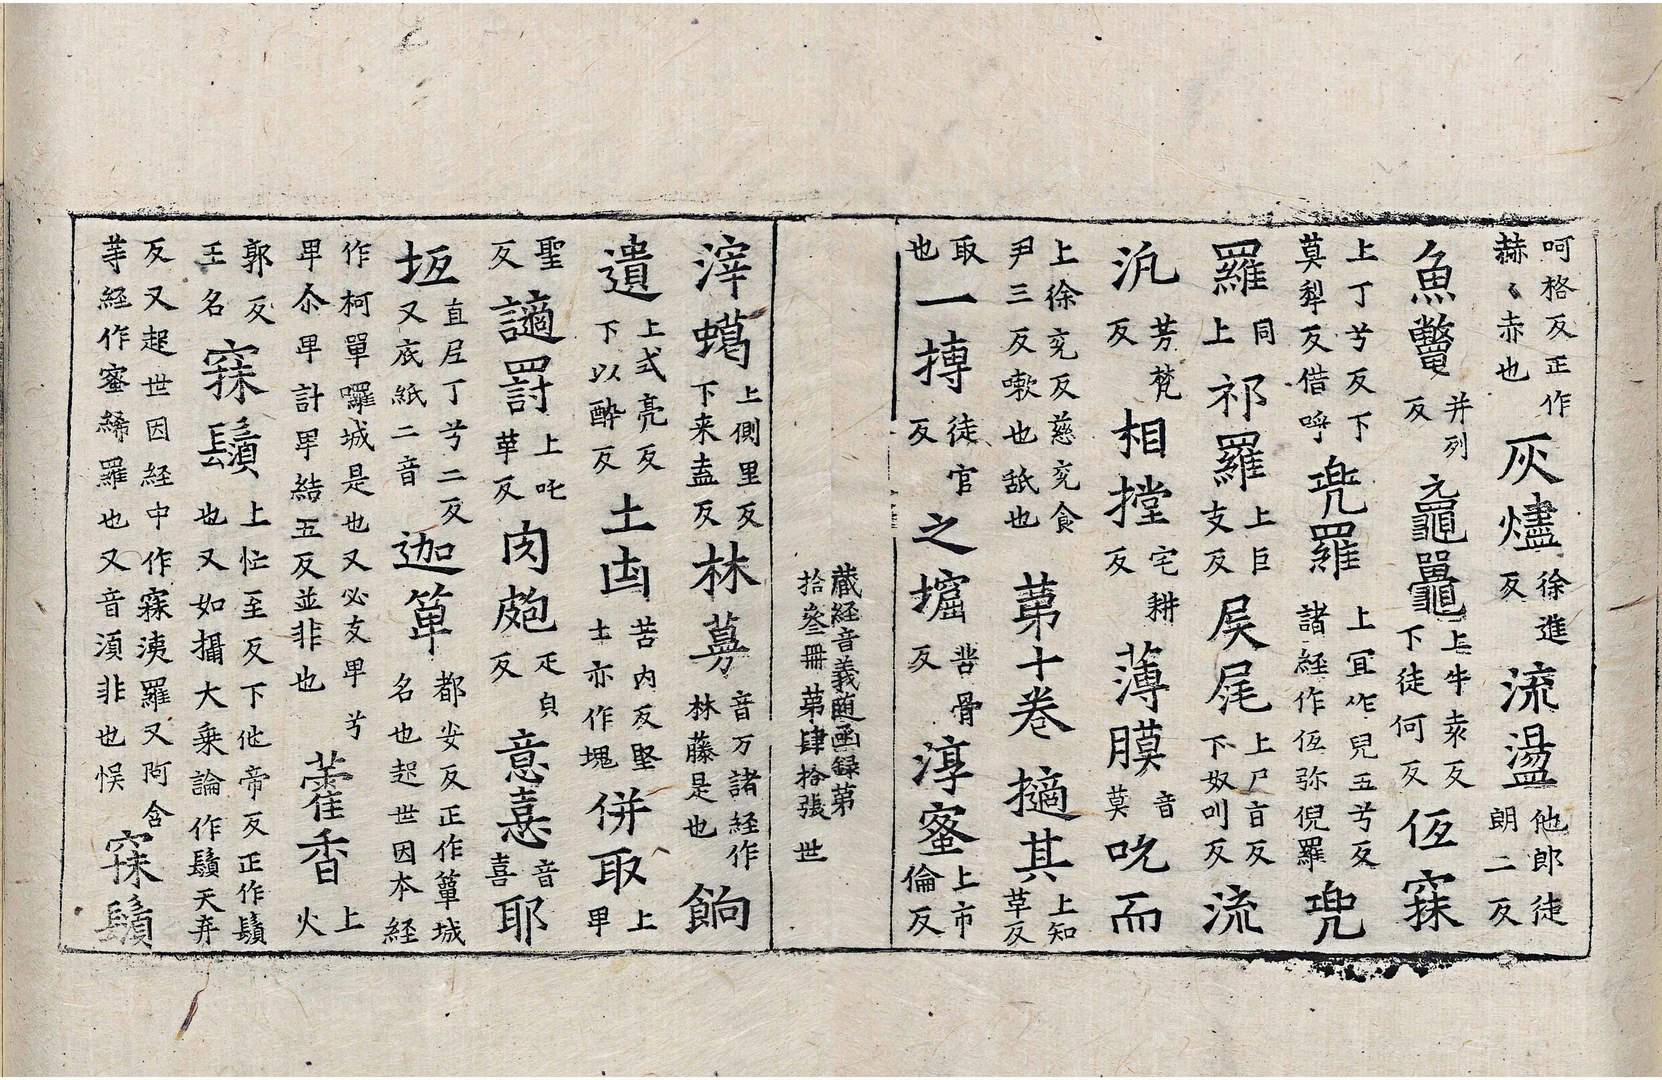 呵格反正作赫〻赤也灰燼徐進反流盪他郎徒朗二反
魚鼈并列反黿鼉上牛袁反下徒何反伍寐
上丁兮反下莫犁反借呼兠羅上冝作兒五兮反諸経作伍弥倪羅兠
羅同上祁羅上巨支反㞋尾上尸盲反下奴叫反流
汎芳梵反相摚宅耕反薄膜音莫吮而
上徐兖反慈兖食尹三反嗽也舐也苐十卷擿其上知草反
取也一摶徒官反之堀苦骨反淳蜜上市倫反
蔵経音義随函録第拾叁冊 第肆拾張 世
滓蠍上側里反下来盍反林蕚音万諸経作林藤是也餉
遺上式亮反下以醉反土凷苦内反堅土亦作塊併取上畀
聖反讁罰上吒革反肉皰疋皃反意憙音喜耶
坘直尼丁兮二反又底紙二音迦箪都安反正作簞城名也起世因本経
作柯單囉城是也又必支畀兮畀尒畀計畀結五反並非也藿香上火
郭反王名寐鬚上忙至反下他帝反正作鬚也又如攝大乗論作鬚天弃
反又起世因経中作寐洟羅又阿含䓁経作蜜絺羅也又音須非也悞寐鬚